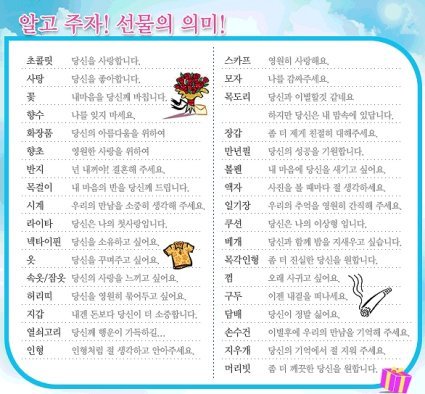 알고 주자! 선물의 의미!
초콜릿 당신을 사랑합니다.
사탕 당신을 좋아합니다.
꽃 내마음을 당신께 바칩니다.
향수 나를 잊지 마세요.
화장품 당신의 아름다움을 위하여
향초 영원한 사랑을 위하여
반지 넌 내꺼야! 결혼해 주세요.
목걸이 내 마음의 반을 당신께 드립니다.
시계 우리의 만남을 소중히 생각해 주세요.
라이타 당신은 나의 첫사랑입니다.
넥타이핀 당신을 소유하고 싶어요.
옷 당신을 꾸며주고 싶어요.
속옷/잠옷 당신의 사랑을 느끼고 싶어요.
허리띠 당신을 영원히 묶어두고 싶어요.
지갑 내겐 돈보다 당신이 더 소중합니다.
열쇠고리 당신께 행운이 가득하길...
인형 인형처럼 잘 생각하고 안아주세요.
스카프 영원히 사랑해요.
모자 나를 감싸주세요.
목도리 당신과 이별할것 같네요
하지만 당신은 내 맘속에 있답니다.
장갑 좀 더 제게 친절히 대해주세요.
만년필 당신의 성공을 기원합니다.
볼펜 내 마음에 당신을 새기고 싶어요.
액자 사진을 볼 때마다 절 생각하세요.
일기장 우리의 추억을 영원히 간직해 주세요.
쿠션 당신은 나의 이상형 입니다.
베개 당신과 함께 밤을 지새우고 싶습니다.
목각인형 좀 더 진실한 당신을 원합니다.
껌 오래 사귀고 싶어요.
구두 이젠 내곁을 떠나세요.
담배 당신이 정말 싫어요.
손수건 이별후에 우리의 만남을 기억해 주세요.
지우개 당신의 기억에서 절 지워 주세요.
머리빗 좀 더 깨끗한 당신을 원합니다.